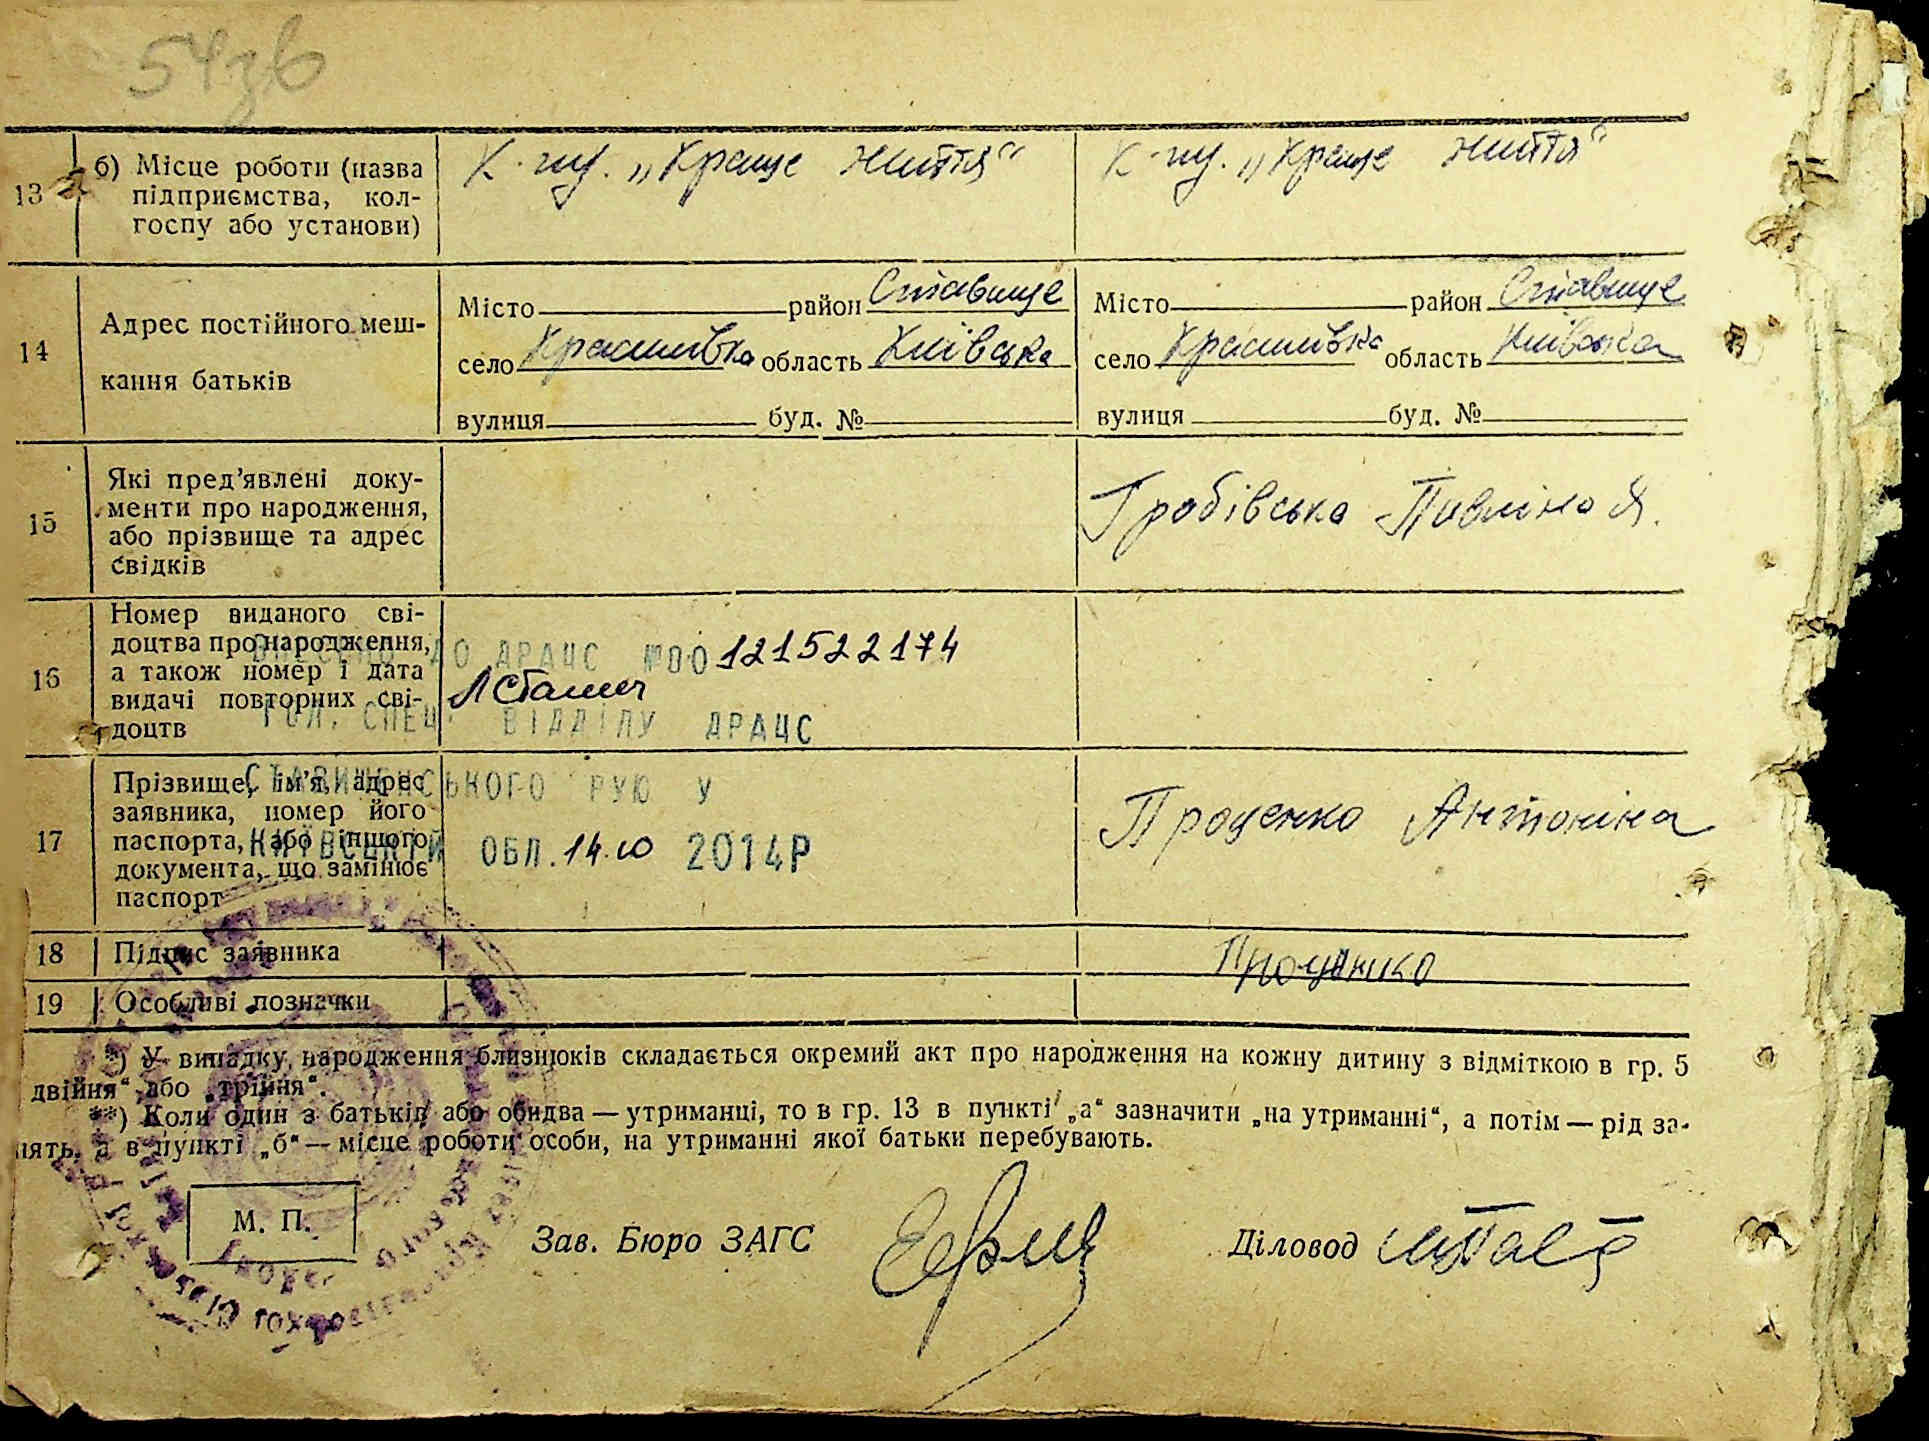 54зв
13 б) Місце роботи (назва підприємства, колгоспу або установи)
К-ну. „Краще життя“ К-ну. „Краще життя“
14 Адрес постійного мешкання батьків
Місто район Ставище Місто район Ставище
село Красилівка область Київська село Красилівка область Київська
вулиця буд. № вулиця буд. №
15 Які пред’явлені документи про народження, або прізвище та адрес свідків
Гробівська Павліна Я.
16 Номер виданого свідоцтва про народження, а також номер і дата видачі повторних свідоцтв
ДО ДРАЦС №00121522174
ГОЛ. СПЕЦ. ВІДДІЛУ ДРАЦС
17 Прізвище, ім’я, адрес заявника, номер його паспорта, або іншого документа, що замінює паспорт
СТАВИЩЕНСЬКОГО РУЮ У
КИЇВСЬКІЙ ОБЛ. 14.10 2014Р
Проценко Антоніна
18 Підпис заявника Проценко
19 Особливі позначки
*) У випадку народження близнюків складається окремий акт про народження на кожну дитину з відміткою в гр. 5
двійня“ або „трійня“.
**) Коли один з батьків або обидва — утриманці, то в гр. 13 в пункті „а“ зазначити „на утриманні“, а потім — рід за-
нять, а в пункті „б“ — місце роботи особи, на утриманні якої батьки перебувають.
М. П.
Зав. Бюро ЗАГС Діловод